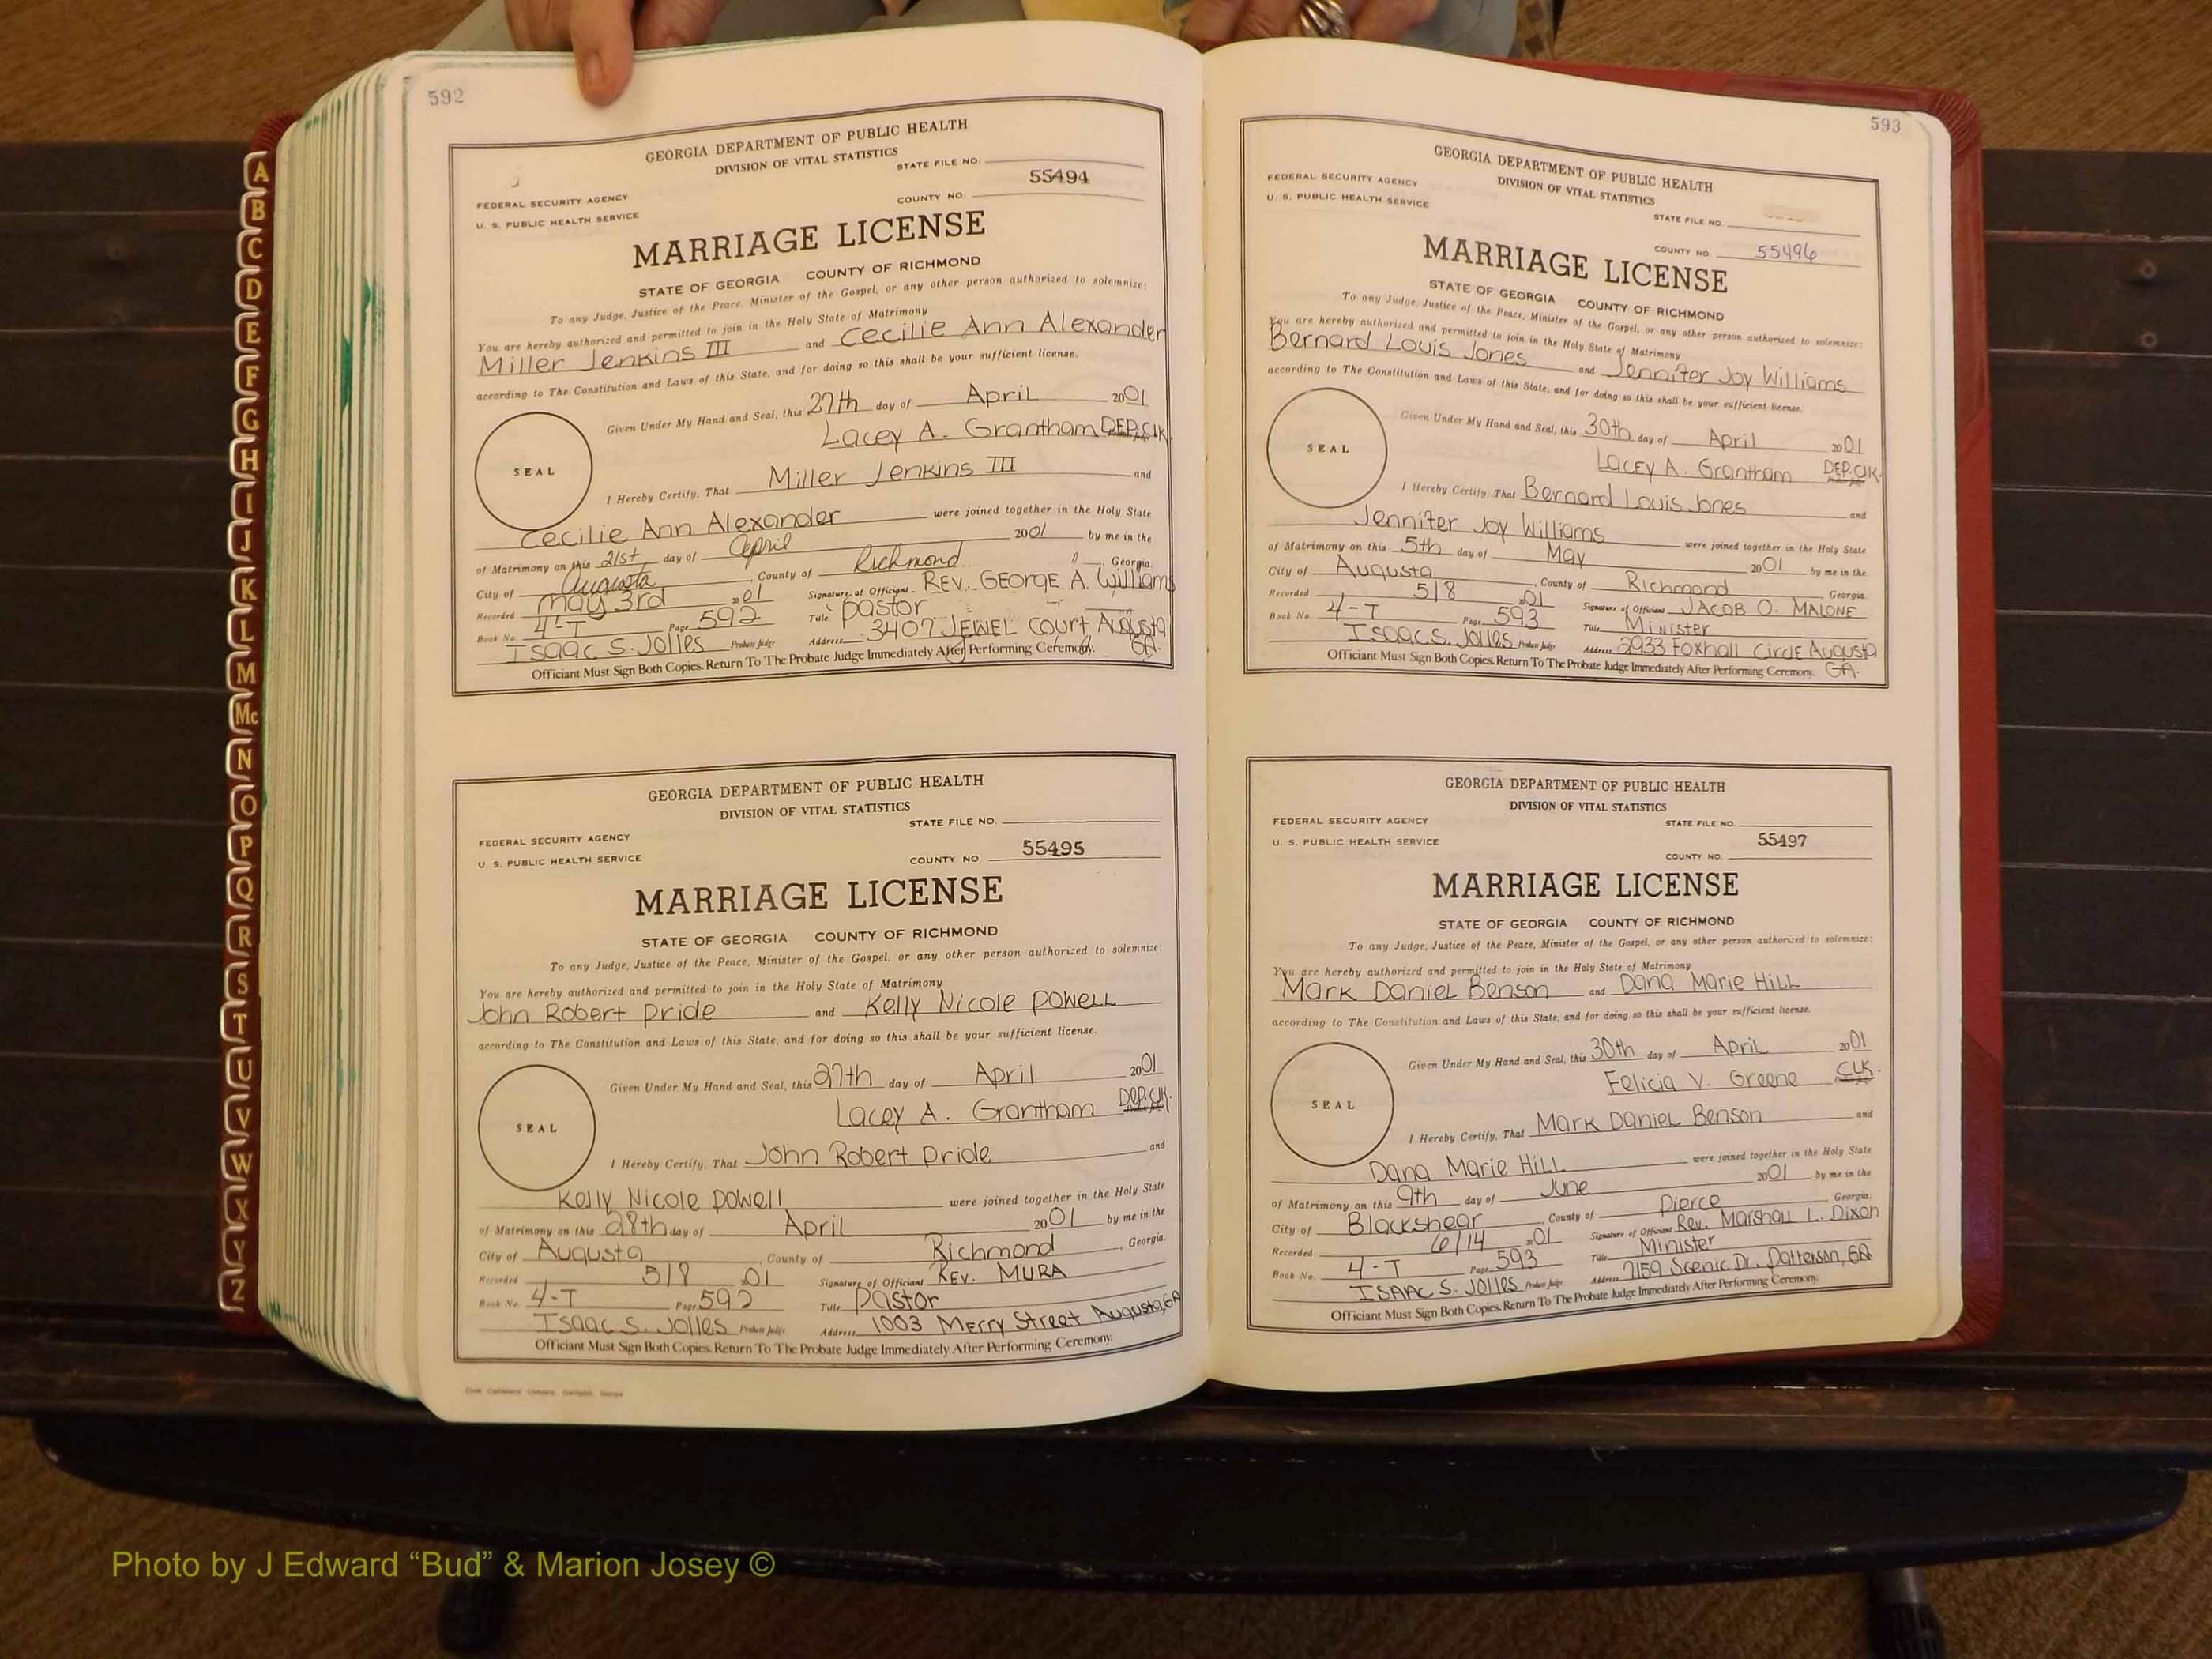 592
GEORGIA DEPARTMENT OF PUBLIC HEALTH
DIVISION OF VITAL STATISTICS
STATE FILE NO.
FEDERAL SECURITY AGENCY
U. S. PUBLIC HEALTH SERVICE
COUNTY NO. 55494
MARRIAGE LICENSE
STATE OF GEORGIA COUNTY OF RICHMOND
To any Judge, Justice of the Peace, Minister of the Gospel, or any other person authorized to solemnize:
You are hereby authorized and permitted to join in the Holy State of Matrimony
Miller Jenkins III and Cecilie Ann Alexander
according to The Constitution and Laws of this State, and for doing so this shall be your sufficient license.
Given Under My Hand and Seal, this 27th day of April 2001
Lacey A. Grantham DEP. Clk.
SEAL
I Hereby Certify, That Miller Jenkins III and
Cecilie Ann Alexander were joined together in the Holy State
of Matrimony on this 21st day of April 2001 by me in the
City of Augusta, County of Richmond, Georgia.
Recorded May 3rd 2001 Signature of Officiant REV. GEORGE A. Williams
Book No. 4-T Page 592 Title Pastor
Isaac S. Jolles Probate Judge Address 3407 JEWEL Court Augusta GA.
Officiant Must Sign Both Copies. Return To The Probate Judge Immediately After Performing Ceremony.
GEORGIA DEPARTMENT OF PUBLIC HEALTH
DIVISION OF VITAL STATISTICS
STATE FILE NO.
FEDERAL SECURITY AGENCY
U. S. PUBLIC HEALTH SERVICE
COUNTY NO. 55495
MARRIAGE LICENSE
STATE OF GEORGIA COUNTY OF RICHMOND
To any Judge, Justice of the Peace, Minister of the Gospel, or any other person authorized to solemnize:
You are hereby authorized and permitted to join in the Holy State of Matrimony
John Robert Pride and Kelly Nicole Powell
according to The Constitution and Laws of this State, and for doing so this shall be your sufficient license.
Given Under My Hand and Seal, this 27th day of April 2001
Lacey A. Grantham Dep. Clk.
SEAL
I Hereby Certify, That John Robert Pride and
Kelly Nicole Powell were joined together in the Holy State
of Matrimony on this 28th day of April 2001 by me in the
City of Augusta, County of Richmond, Georgia.
Recorded 5/8 2001 Signature of Officiant REV. MURA
Book No. 4-T Page 592 Title Pastor
Isaac S. Jolles Probate Judge Address 1003 Merry Street Augusta, GA
Officiant Must Sign Both Copies. Return To The Probate Judge Immediately After Performing Ceremony.
593
GEORGIA DEPARTMENT OF PUBLIC HEALTH
DIVISION OF VITAL STATISTICS
FEDERAL SECURITY AGENCY
U. S. PUBLIC HEALTH SERVICE
STATE FILE NO.
COUNTY NO. 55496
MARRIAGE LICENSE
STATE OF GEORGIA COUNTY OF RICHMOND
To any Judge, Justice of the Peace, Minister of the Gospel, or any other person authorized to solemnize:
You are hereby authorized and permitted to join in the Holy State of Matrimony
Bernard Louis Jones and Jennifer Joy Williams
according to The Constitution and Laws of this State, and for doing so this shall be your sufficient license.
Given Under My Hand and Seal, this 30th day of April 2001
Lacey A. Grantham DEP. Clk.
SEAL
I Hereby Certify, That Bernard Louis Jones and
Jennifer Joy Williams were joined together in the Holy State
of Matrimony on this 5th day of May 2001 by me in the
City of Augusta, County of Richmond Georgia
Recorded 5/8 2001 Signature of Officiant JACOB O. MALONE
Book No. 4-T Page 593 Title Minister
Isaac S. Jolles Probate Judge Address 2933 Foxhall Circle Augusta GA.
Officiant Must Sign Both Copies. Return To The Probate Judge Immediately After Performing Ceremony.
GEORGIA DEPARTMENT OF PUBLIC HEALTH
DIVISION OF VITAL STATISTICS
FEDERAL SECURITY AGENCY
STATE FILE NO.
U. S. PUBLIC HEALTH SERVICE
COUNTY NO. 55497
MARRIAGE LICENSE
STATE OF GEORGIA COUNTY OF RICHMOND
To any Judge, Justice of the Peace, Minister of the Gospel, or any other person authorized to solemnize:
You are hereby authorized and permitted to join in the Holy State of Matrimony
Mark Daniel Benson and Dana Marie Hill
according to The Constitution and Laws of this State, and for doing so this shall be your sufficient license.
Given Under My Hand and Seal, this 30th day of April 2001
Felicia V. Greene CLK.
SEAL
I Hereby Certify, That Mark Daniel Benson and
Dana Marie Hill were joined together in the Holy State
of Matrimony on this 9th day of June 2001 by me in the
City of Blackshear, County of Pierce, Georgia.
Recorded 6/14 2001 Signature of Officiant Rev. Marshall L. Dixon
Book No. 4-T Page 593 Title Minister
ISAAC S. Jolles Probate Judge Address 7159 Scenic Dr. Patterson, GA
Officiant Must Sign Both Copies. Return To The Probate Judge Immediately After Performing Ceremony.
A
B
C
D
E
F
G
H
I
J
K
L
M
Mc
N
O
P
Q
R
S
T
U
V
W
X
Y
Z
Photo by J Edward “Bud” & Marion Josey ©